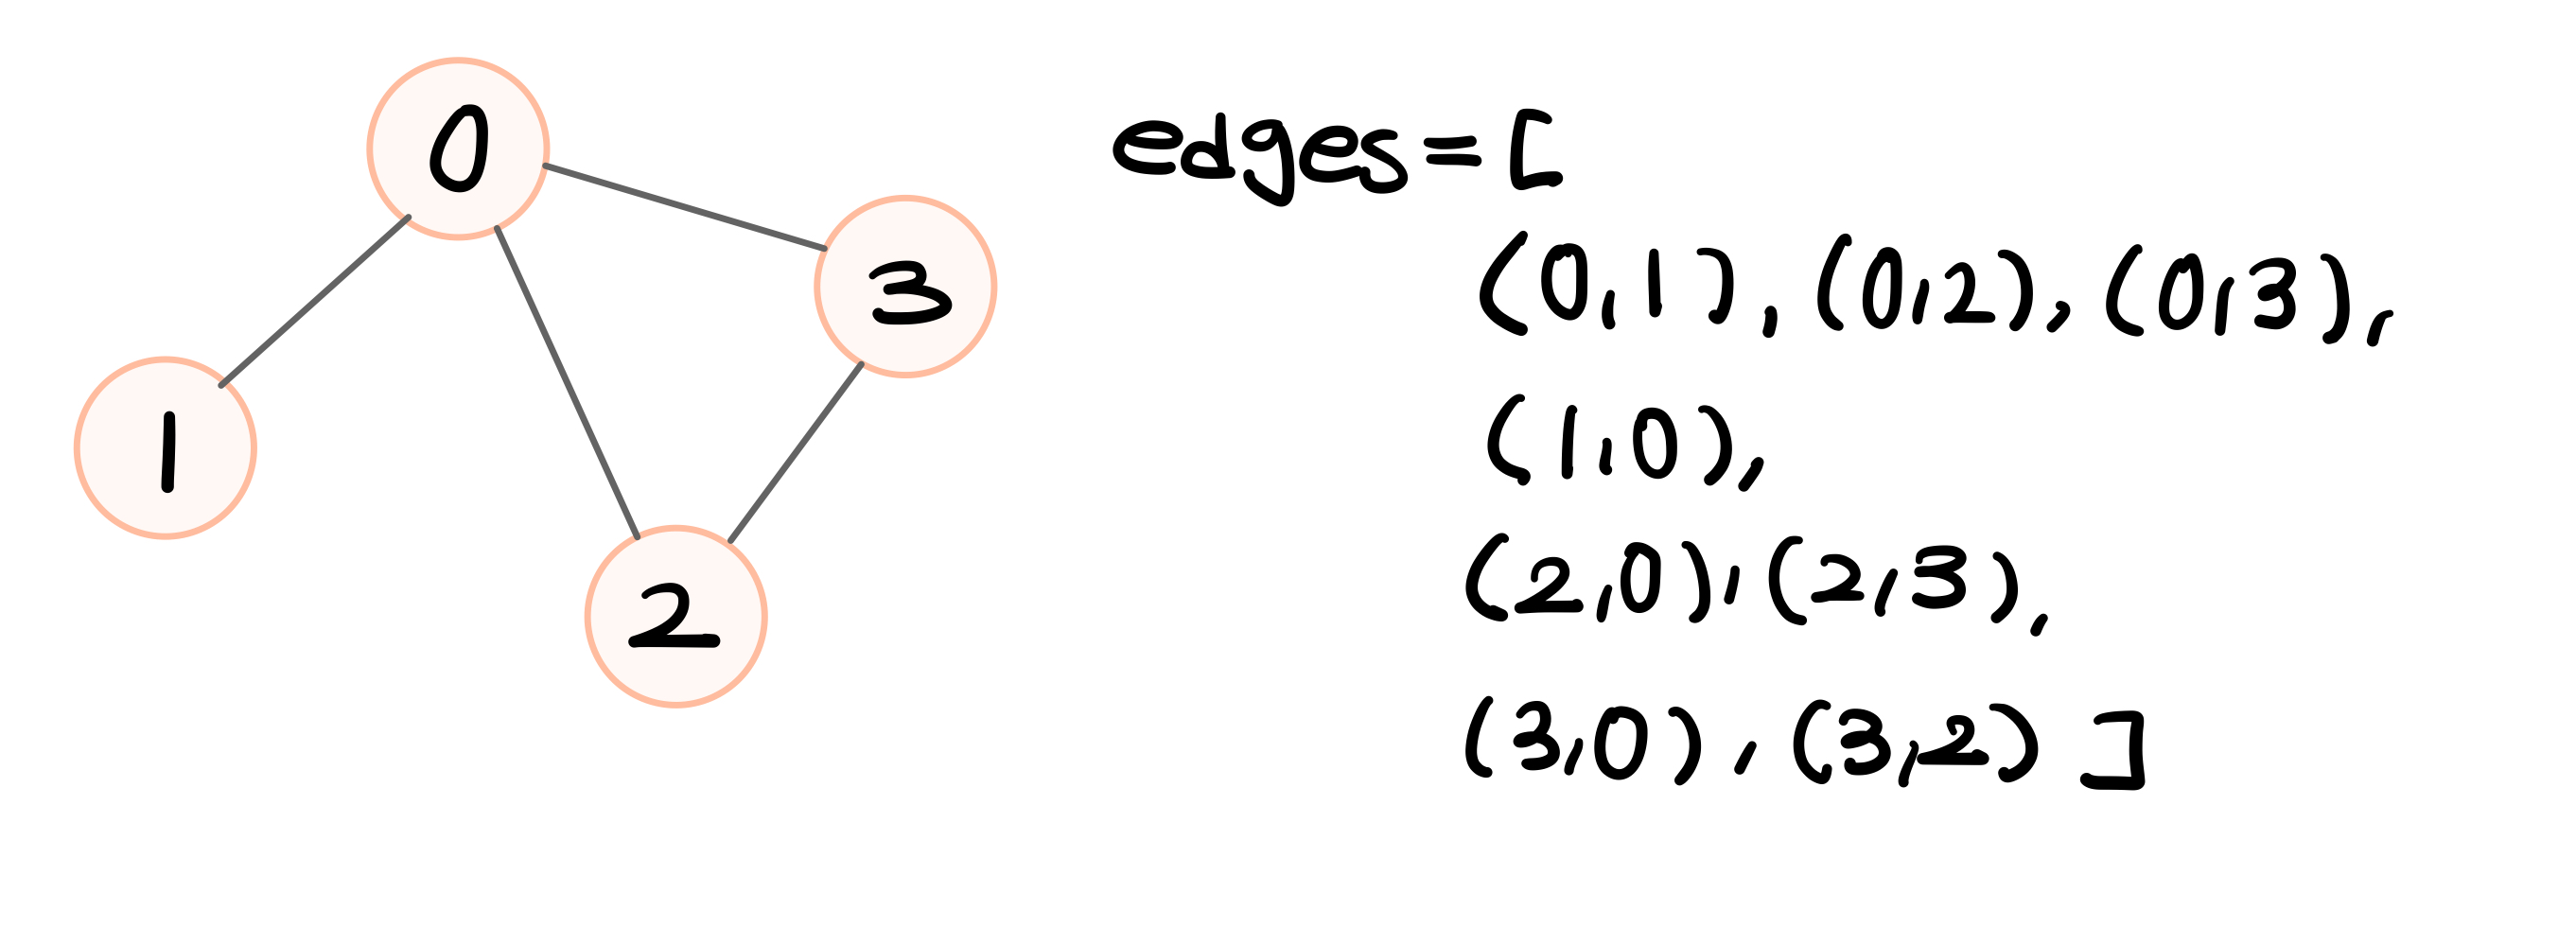 0
3
1
2
edges=[
(0,1), (0,2), (0,3),
(1,0),
(2,0), (2,3),
(3,0), (3,2) ]